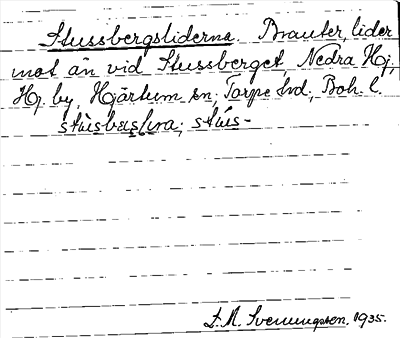 Stussbergsliderna. Branter, lider
mot ån vid Stussberget Nedra Hj.
Hj. by, Hjärtum sn; Torpe hd; Boh. l.
stùsbæs̱ḻi̱ra; stús-
S. M. Svenungsson. 1935.